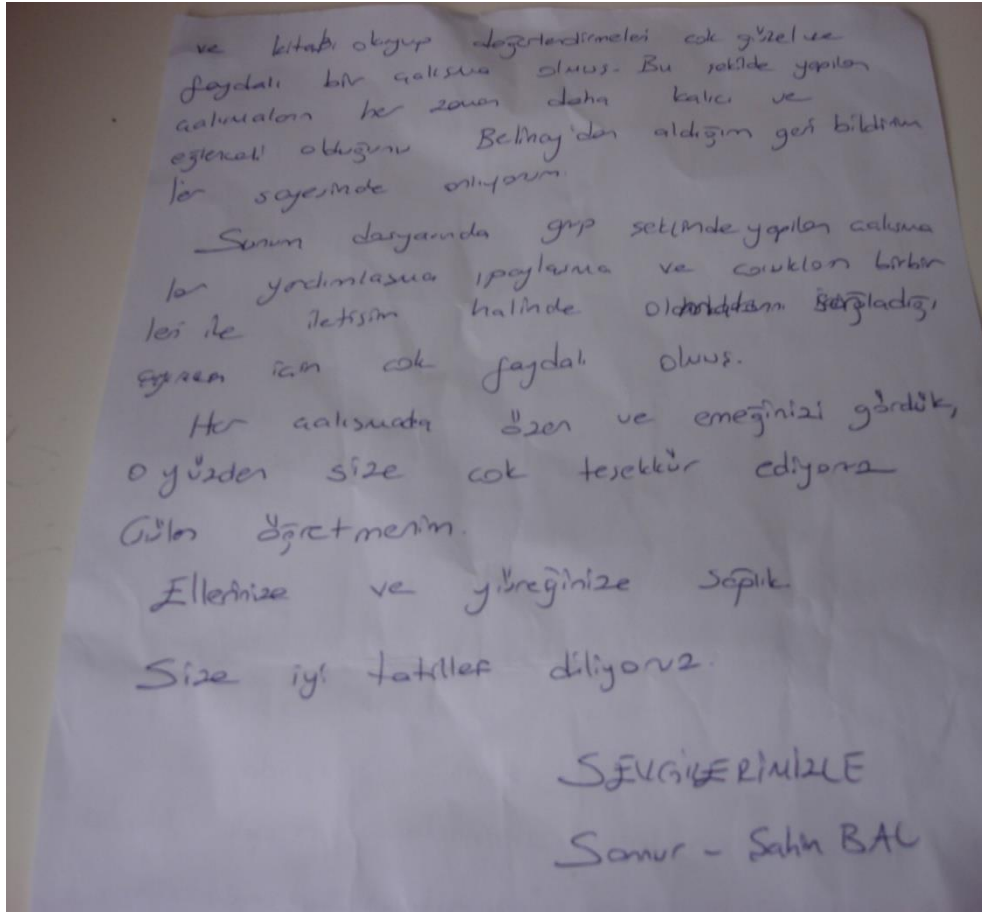 ve kitabı okuyup değerlendirmeleri cok güzel ve
faydalı bir calısma olmus. Bu sekilde yapılan
calısmaların her zaman daha kalıcı ve
eğlenceli olduğunu Belinay'dan aldığım geri bildirim
ler sayesinde anlıyorum.
Sunum dosyasında grup seklinde yapılan calısma
lar yardımlasma, paylasma ve cocukların birbir
leri ile iletisim halinde sağladığı
icin cok faydalı olmus.
Her calısmada özen ve emeğinizi gördük,
o yüzden size cok tesekkür ediyoruz
Gülen öğretmenim.
Ellerinize ve yüreğinize sağlık.
Size iyi tatiller diliyoruz.
SEVGİLERİMİZLE
Somur - Sahin BAL